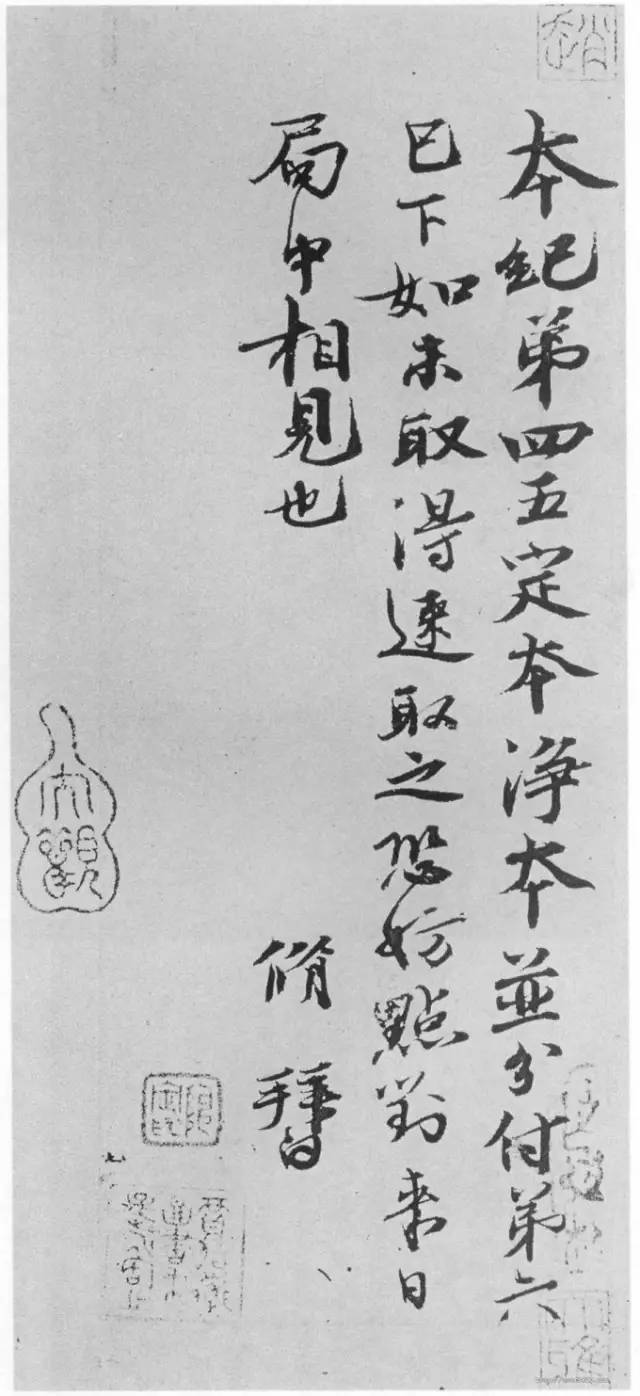 本紀第四五定本淨本並分付第六
已下如未取得速取之恐妨點對来日
局中相見也
脩 拜白
大觀